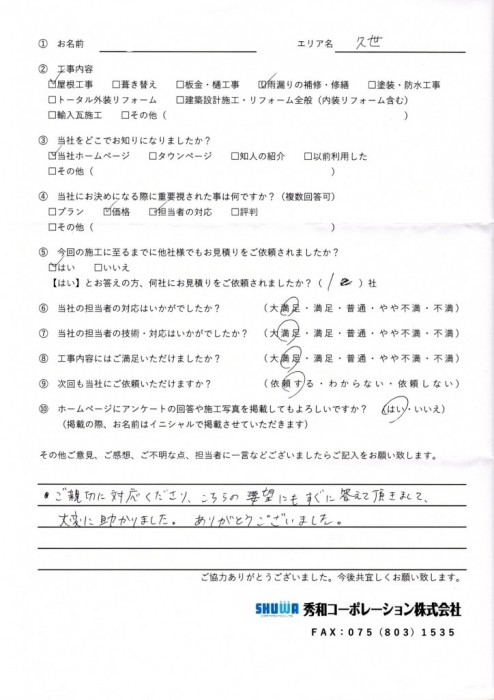 ① お名前 エリア名 久世
② 工事内容
☑屋根工事 □葺き替え □板金・樋工事 ☑雨漏りの補修・修繕 □塗装・防水工事
□トータル外装リフォーム □建築設計施工・リフォーム全般（内装リフォーム含む）
□輸入瓦施工 □その他（ ）
③ 当社をどこでお知りになりましたか？
☑当社ホームページ □タウンページ □知人の紹介 □以前利用した
□その他（ ）
④ 当社にお決めになる際に重要視された事は何ですか？（複数回答可）
□プラン ☑価格 ☑担当者の対応 □評判
□その他（ ）
⑤ 今回の施工に至るまでに他社様でもお見積りをご依頼されましたか？
☑はい □いいえ
【はい】とお答えの方、何社にお見積りをご依頼されましたか？（ ）社
⑥ 当社の担当者の対応はいかがでしたか？ （大満足・満足・普通・やや不満・不満）
⑦ 当社の担当者の技術・対応はいかがでしたか？ （大満足・満足・普通・やや不満・不満）
⑧ 工事内容にはご満足いただけましたか？ （大満足・満足・普通・やや不満・不満）
⑨ 次回も当社にご依頼いただけますか？ （依頼する・わからない・依頼しない）
⑩ ホームページにアンケートの回答や施工写真を掲載してもよろしいですか？ （はい・いいえ）
（掲載の際、お名前はイニシャルで掲載させていただきます）
その他ご意見、ご感想、ご不明な点、担当者に一言などございましたらご記入をお願い致します。
・ご親切に対応くださり、こちらの要望にもすぐに答えて頂きまして、
大変に助かりました。ありがとうございました。
ご協力ありがとうございました。今後共宜しくお願い致します。
SHUWA 秀和コーポレーション株式会社
FAX：075（803）1535